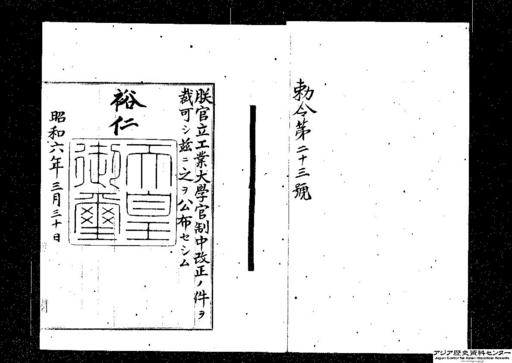 勅令第二十三號
朕官立工業大學官制中改正ノ件ヲ
裁可シ茲ニ之ヲ公布セシム
裕仁
天皇
御璽
昭和六年三月三十日
アジア歴史資料センター
Japan Center for Asian Historical Records